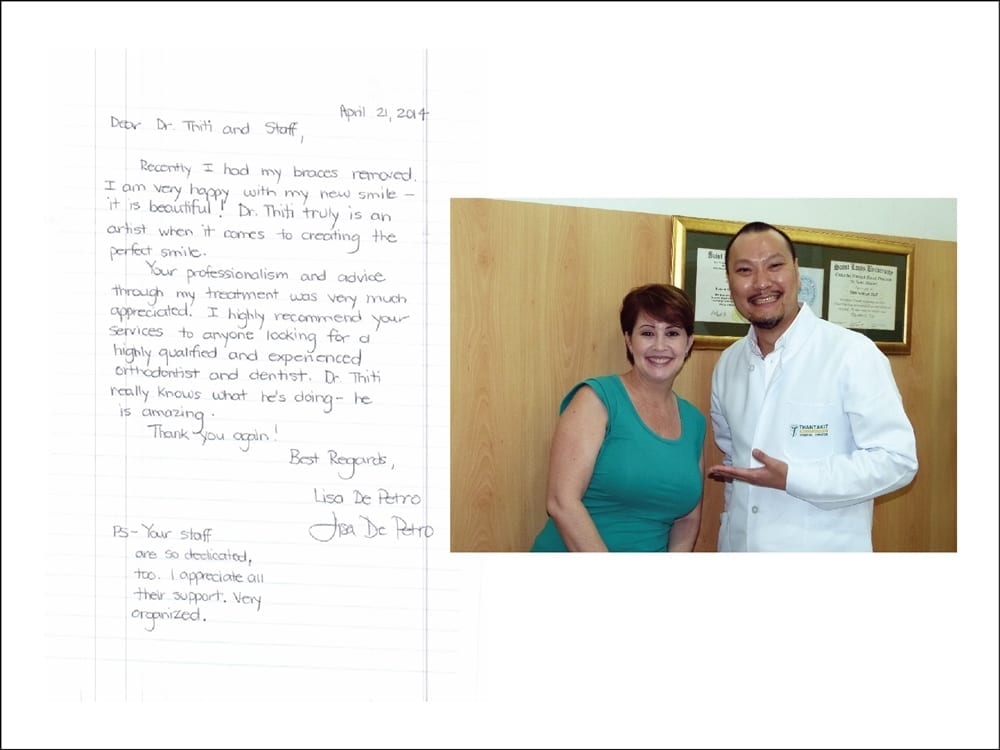 April 21, 2014
Dear Dr. Thiti and Staff,
Recently I had my braces removed.
I am very happy with my new smile –
it is beautiful! Dr. Thiti truly is an
artist when it comes to creating the
perfect smile.
Your professionalism and advice
through my treatment was very much
appreciated. I highly recommend your
services to anyone looking for a
highly qualified and experienced
orthodontist and dentist. Dr. Thiti
really knows what he's doing – he
is amazing.
Thank-you again!
Best Regards,
Lisa De Petro
Lisa De Petro
PS – Your staff
are so dedicated,
too. I appreciate all
their support. Very
organized.
Saint
Saint Louis University
THANTAKIT